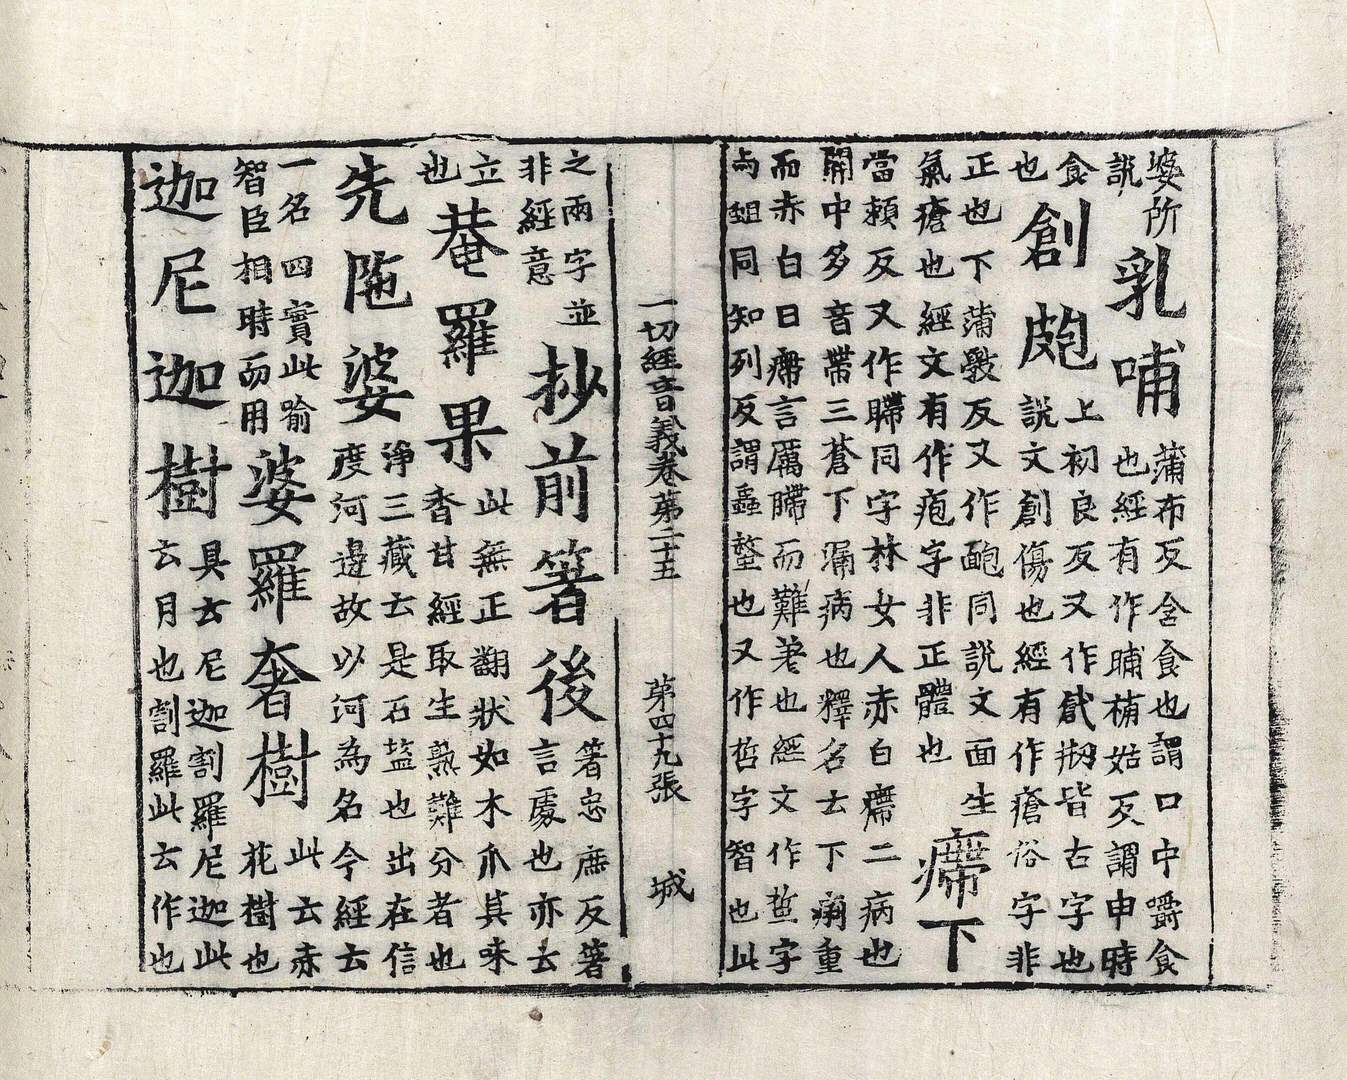 婆所
説
乳哺
蒲布反含食也謂口中嚼食
也經有作晡補姑反謂申時
食
也
創皰
上初良反又作戧剏皆古字也
說文創傷也經有作瘡俗字非
正也下蒲反又作同説文面生
氣瘡也經文有作疱字非正體也
㿃下
當賴反又作同字林女人赤白㿃二病也
關中多音帶三蒼下漏病也釋名云下重
而赤白曰㿃言厲而難差也經文作蜇字
与同知列反謂蟲螫也又作哲字智也此
一切經音義卷第二十五 第四十九張 城
之兩字並
非經意
抄前著後
著忠庶反著
言處也亦云
立
也
菴羅果
此無正翻狀如木爪其味
香甘經取生熟難分者也
先陁婆
淨三藏云是石盐也出在信
度河邊故以河為名今經云
一名四實此喻
智臣相時而用
婆羅奢樹
此云赤
花樹也
迦尼迦樹
具云尼迦割羅尼迦此
云月也割羅此云作也